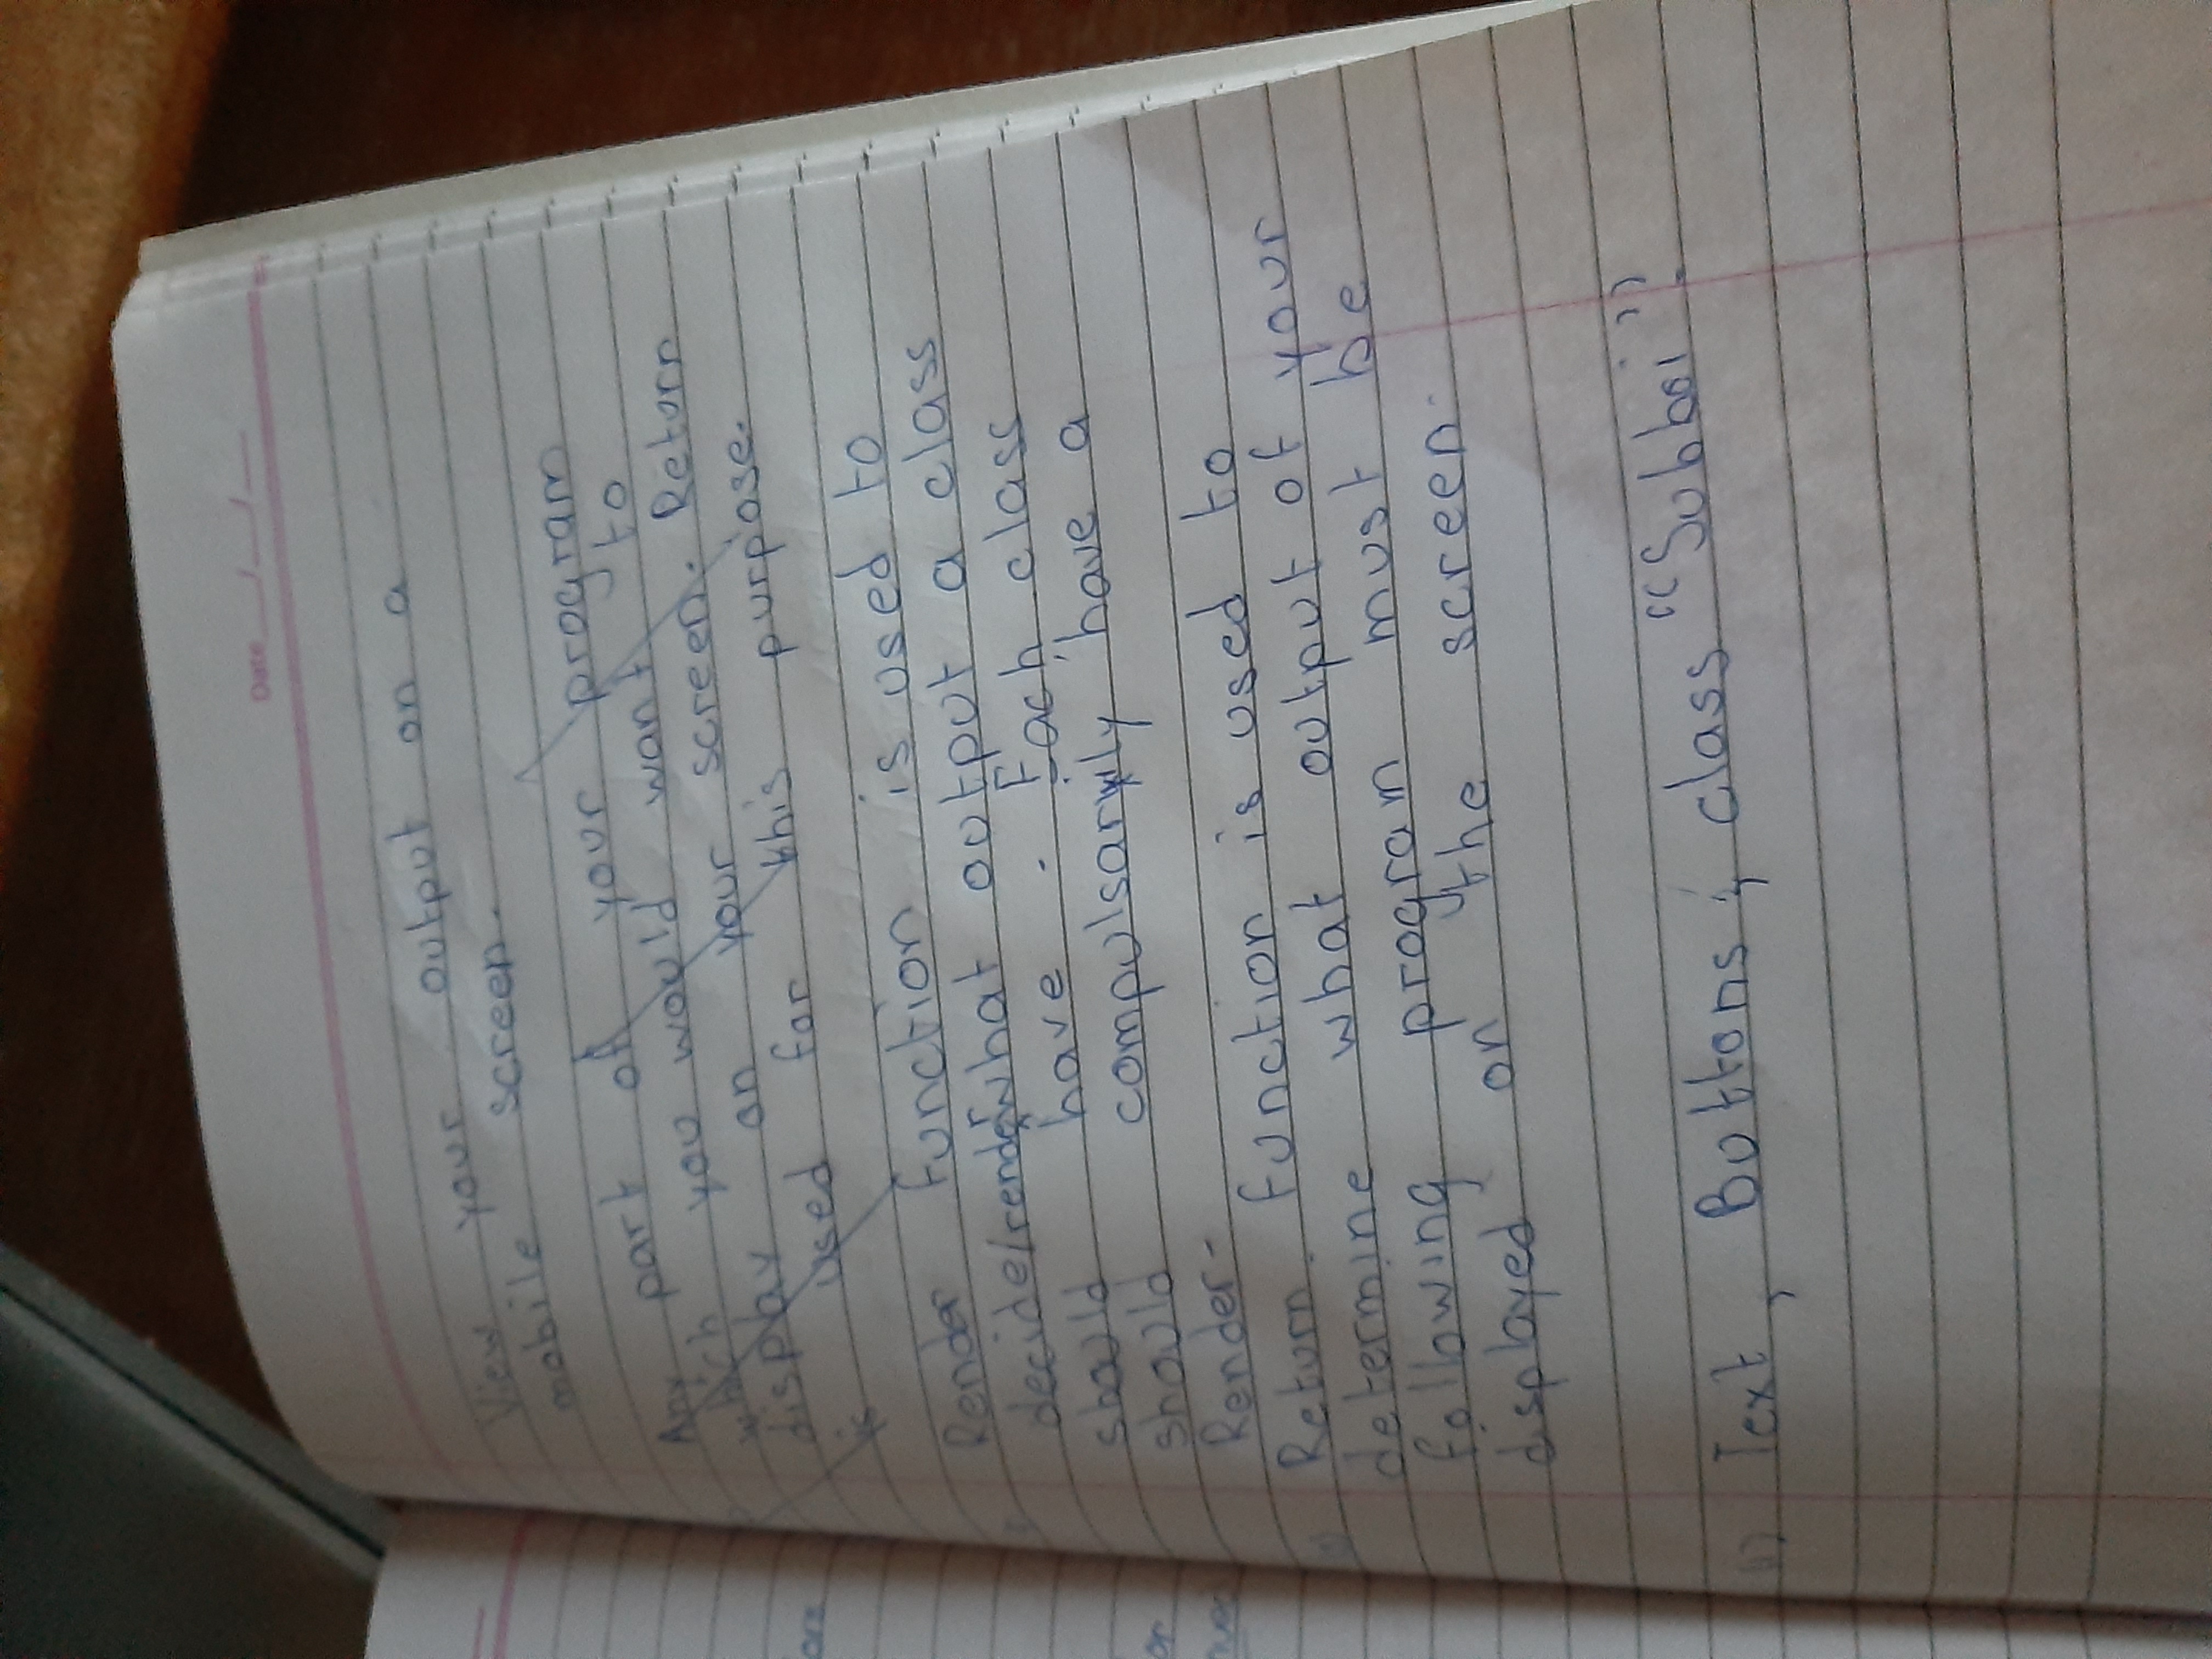 Date __/__/__
View your output on a
mobile screen.
Any part of your program
which you would want to
display on your screen. Return
is used for this purpose.
Render function is used to
decide/render what output a class
should have. Each class
should compulsarily have a
Render-
Return function is used to
determine what output of your
following program must be
displayed on the screen.
Text, Buttons & class "Subboi".